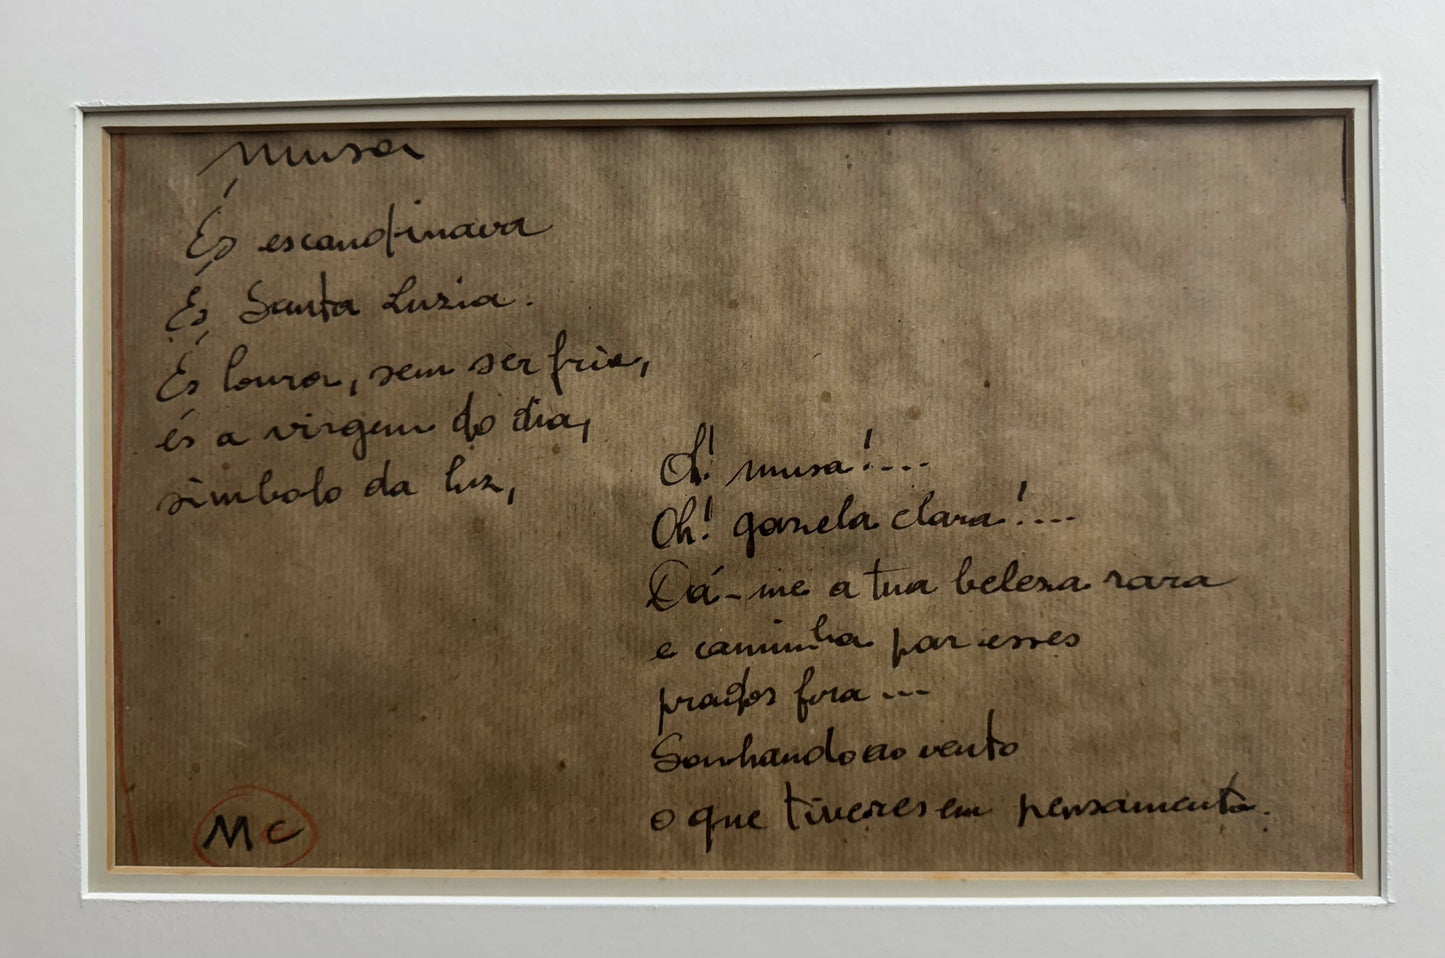 Musa
És escandinava
És Santa Luzia.
És loura, sem ser fria,
és a virgem do dia,
simbolo da luz,
Oh! musa!....
Oh! gazela clara!....
Dá-me a tua beleza rara
e caminha por esses
prados fora...
Sonhando ao vento
o que tiveres em pensamento.
MC